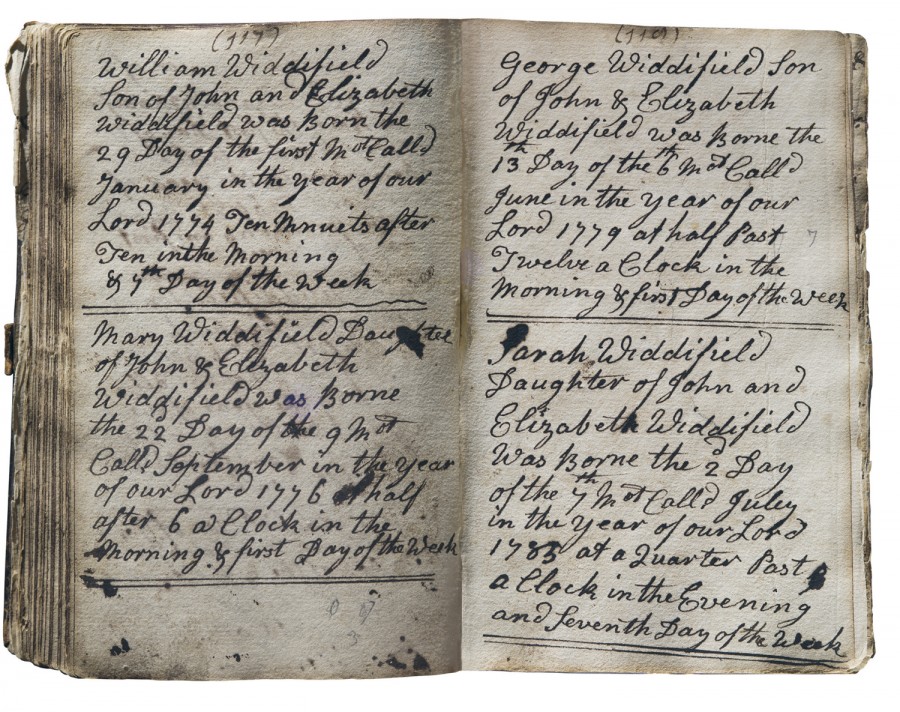 (117)
William Widdifield
Son of John and Elizabeth
Widdifield was Born the
29 Day of the first Mot Calld
January in the year of our
Lord 1774 Ten Mnuets after
Ten in the Morning
& 7th Day of the Week
Mary Widdifield Daughter
of John & Elizabeth
Widdifield was Borne
the 22 Day of the 9 Mot
Calld September in the year
of our Lord 1776 at half
after 6 a Clock in the
Morning & first Day of the Week
George Widdifield Son
of John & Elizabeth
Widdifield was Borne the
13th Day of the 6th Mot Calld
June in the year of our
Lord 1779 at half Past
Twelve a Clock in the
Morning & first Day of the Week
Sarah Widdifield
Daughter of John and
Elizabeth Widdifield
Was Borne the 2d Day
of the 7th Mot Calld Juley
in the year of our Lord
1785 at a Quarter Past
a Clock in the Evening
and Seventh Day of the Week